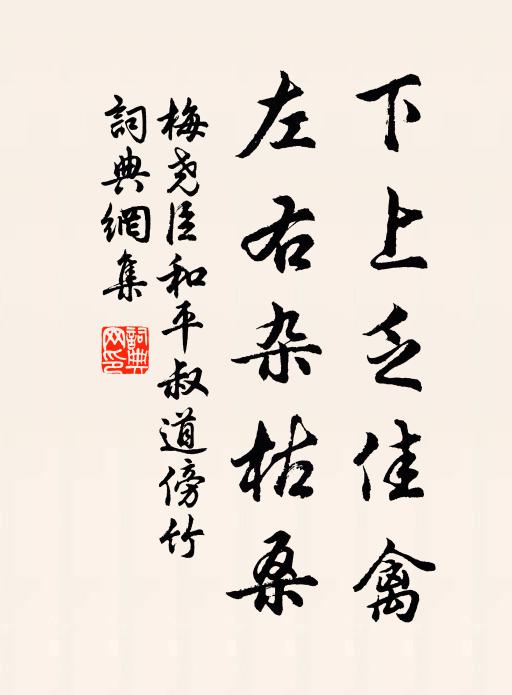 下上乏佳禽
左右杂枯桑
梅尧臣和平叔道傍竹
詞典網集
詞典网印